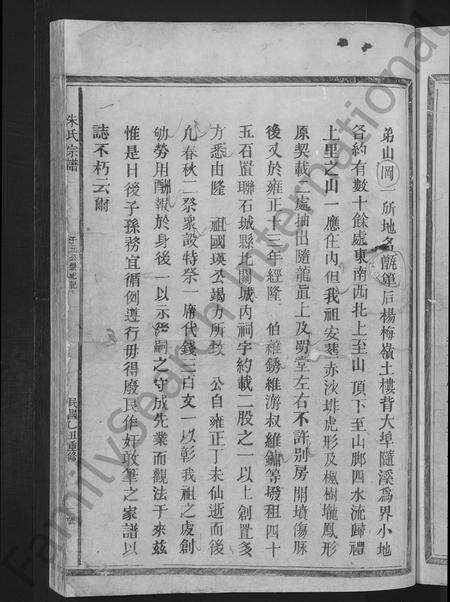 弟山岡一所地名甑箄后楊梅嶺土樓背大埠隨溪爲界小地
各約有數十餘處東南西北上至山頂下至山脚四水流歸禮
上里之山一應住內但我祖安塟赤沙墶虎形及楓樹壠鳳形
原契載二處抽出隨龍直上及明堂左右不許別房開墳傷脉
後又於雍正十三年經隆伯維銹維游叔維鏞等墢租四十
五石置聯石城縣北關城內祠宇約載二股之一以上創置多
方悉由隆祖國瑛公竭力所致公自雍正丁未仙逝而後
凡春秋二祭衆設特祭一席代錢三百文一以彰我祖之處創
劬勞用酬報於身後一以示經嗣之守成先業而觀法于來茲
惟是日後子孫務宜循例遵行毋得廢民作奸敢筆之家譜以
誌不朽云爾
朱氏宗譜
民國乙丑重修
FamilySearch International